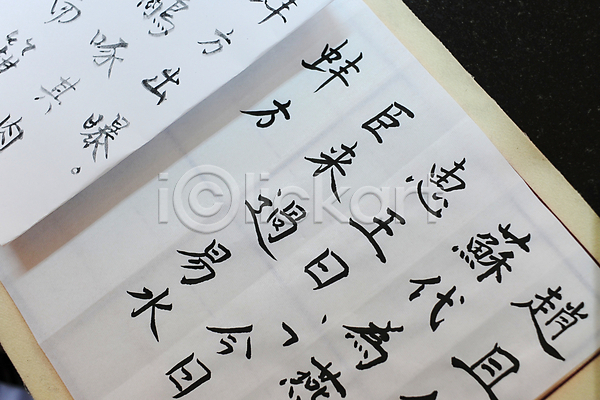 趙且
蘇代為燕
惠王曰、今日
臣来過易水
蚌方
蚌方出曝。
鷸啄其肉
箝